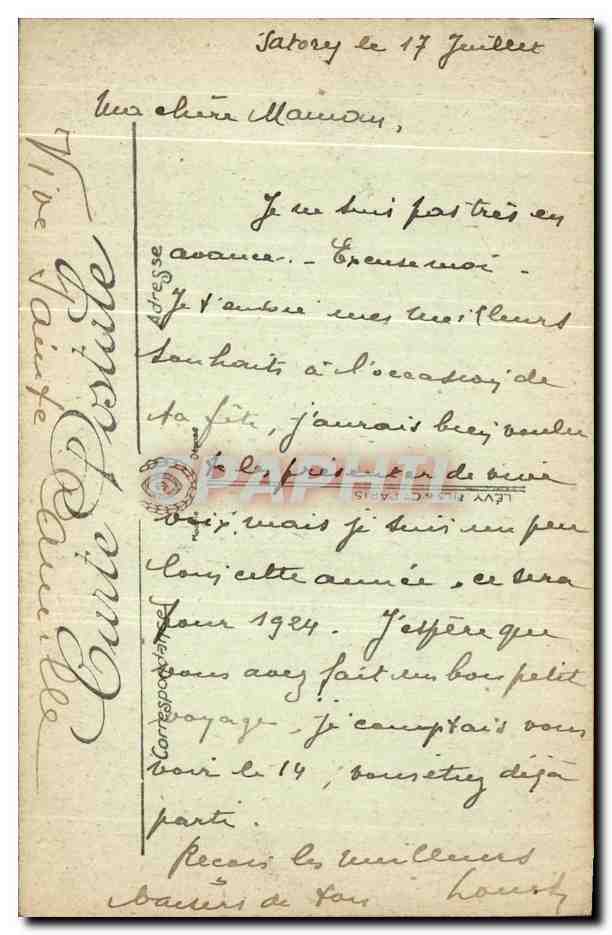 Satory le 17 Juillet
Ma chère Maman,
Je ne suis pas très en
avance. - Excuse moi -
Je t'envoie mes meilleurs
souhaits à l'occasion de
ta fête, j'aurais bien voulu
te les présenter de vive
voix mais je suis un peu
loin cette année, ce sera
pour 1924. J'espère que
vous avez fait un bon petit
voyage, je comptais vous
voir le 14, vous étiez déjà
parti.
Reçois les meilleurs
baisers de ton
Vive Sainte Camille
Carte Postale
Adresse
Correspondance
LÉVY FILS & Cie PARIS
PAPHTI